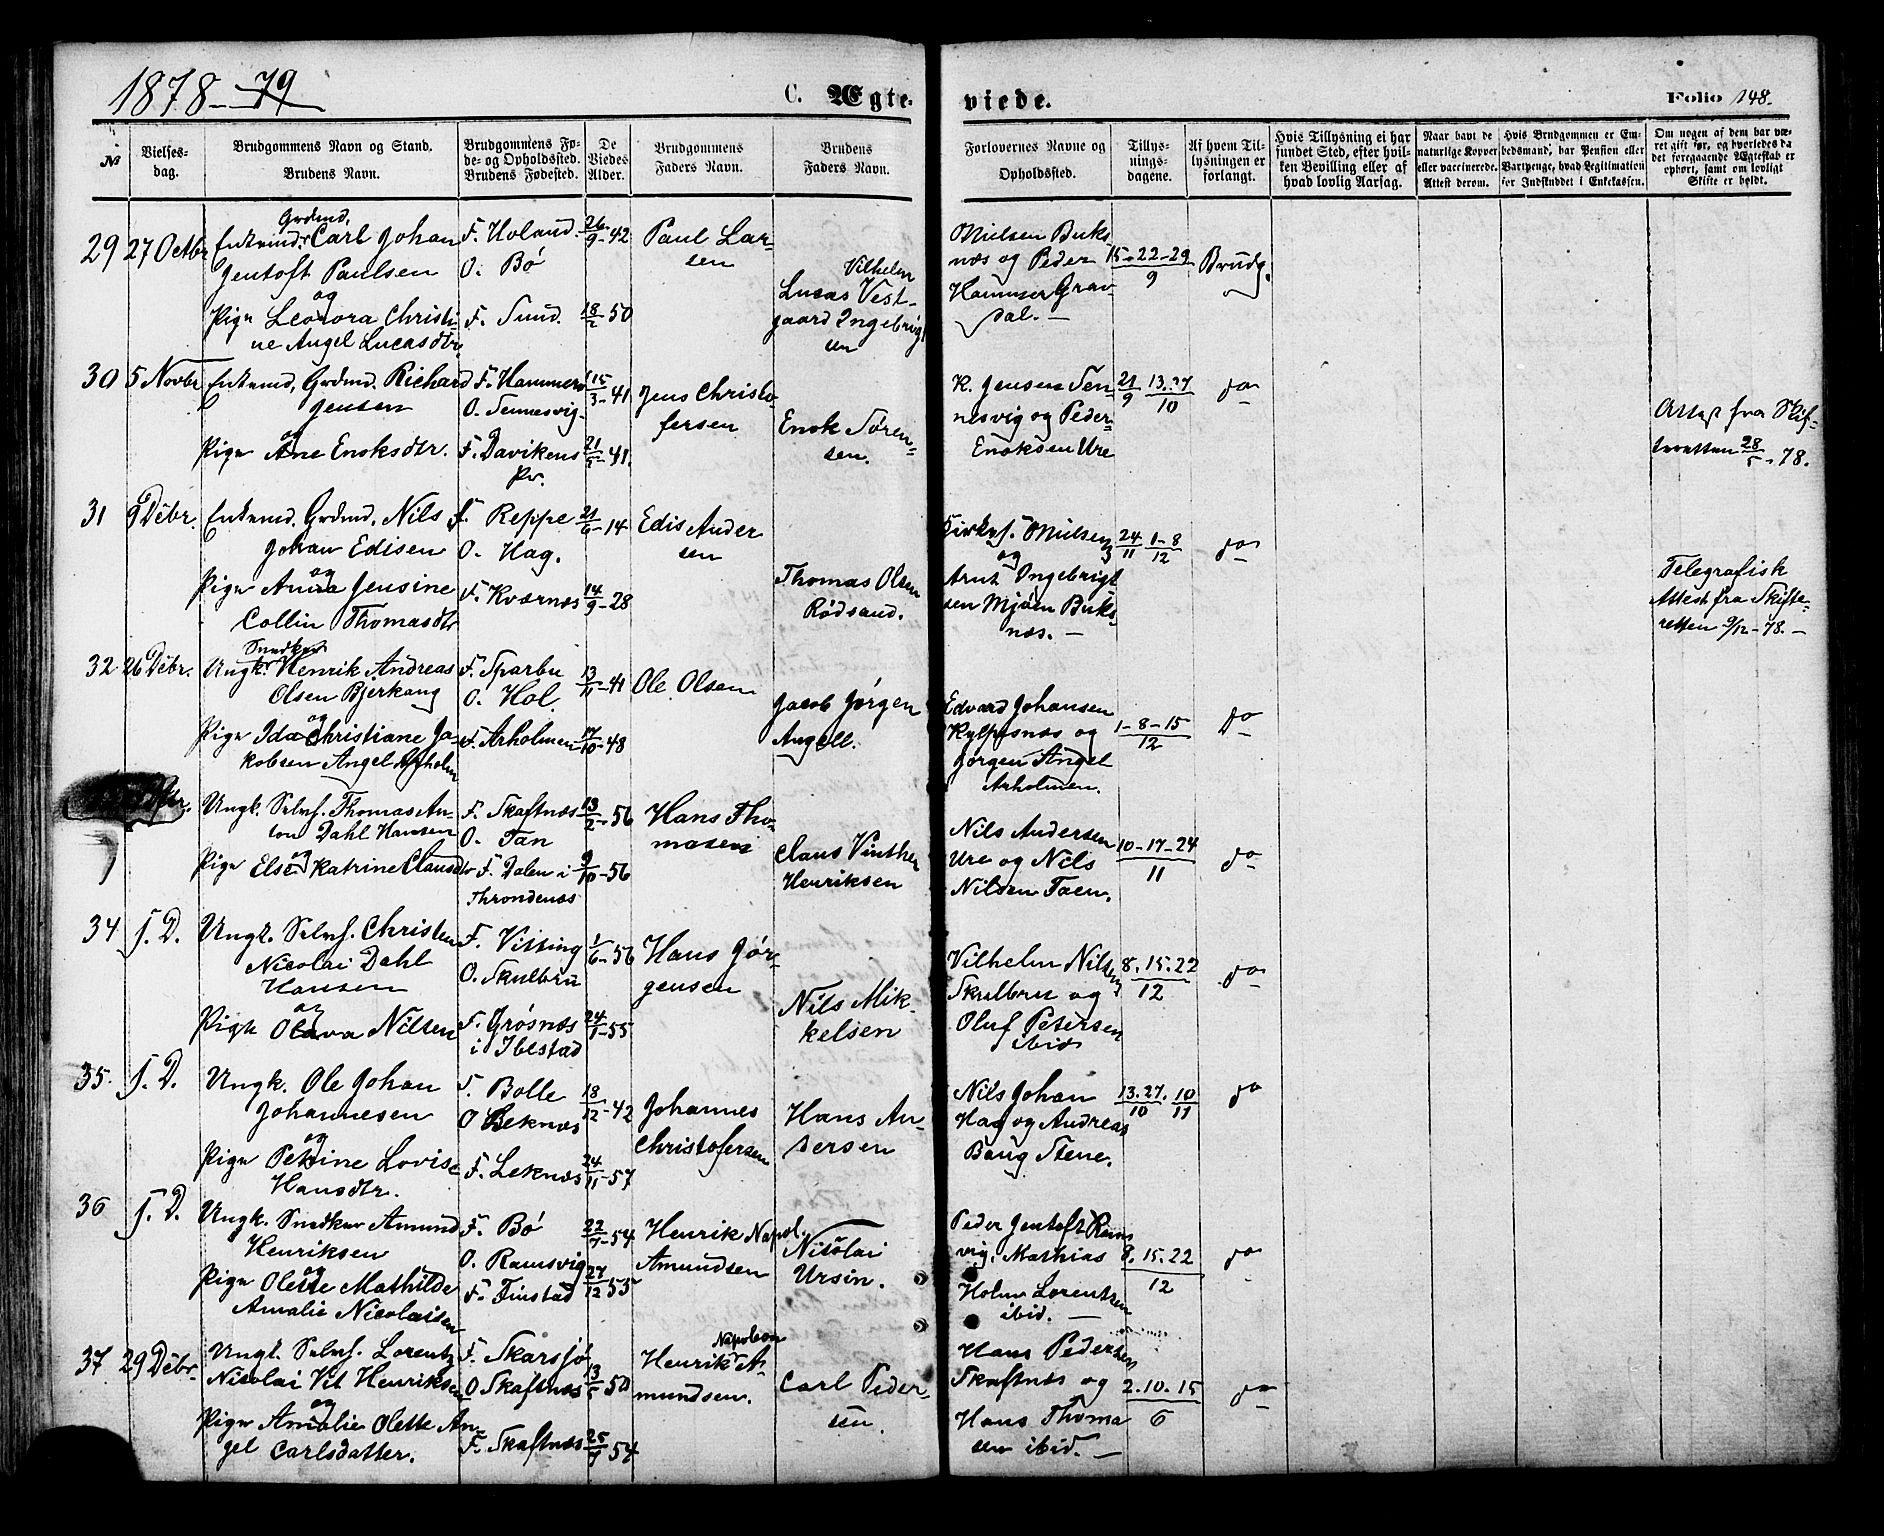 1878-79
C. Ægte-
viede.
Folio 148.
№
Vielses-
dag.
Brudgommens Navn og Stand.
Brudens Navn.
Brudgommens Fø-
de- og Opholdssted.
Brudens Fødested.
De
Viedes
Alder.
Brudgommens
Faders Navn.
Brudens
Faders Navn.
Forlovernes Navne og
Opholdssted.
Tillys-
nings-
dagene.
Af hvem Til-
lysningen er
forlangt.
Hvis Tillysning ei har
fundet Sted, efter hvil-
ken Bevilling eller af
hvad lovlig Aarsag.
Naar havt de
naturlige Kopper
eller vaccinerede.
Attest derom.
Hvis Brudgommen er Em-
bedsmand, har Pension eller
Vartpenge, hvad Legitimation
for Indskuddet i Enkekassen.
Om nogen af dem har væ-
ret gift før, og hvorledes da
det foregaaende Ægteskab er
ophørt, samt om lovligt
Skifte er holdt.
29 27 Octbr
Grdmd.
Enkemd. Carl Johan
Gentoft Paulsen
og
Pige Leonora Christi-
ne Angel Lucasdtr.
F. Holand
O. Bö
F. Sund.
26/9-42
18/2 50
Paul Lar-
sen
Vilhelm
Lucas Vest-
gaard Ingebrigt
sen
Nielsen Buks-
næs og Peder
Hammer Grav-
dal.-
15-22-29
9
Brudg.
30 5 Novbr
Enkemd. Grdmd. Richard
Jensen
og
Pige Ane Enoksdtr.
F. Hammerø
O. Sennesvig
F. Davikens
Pr.
15/3-41
21/5-41.
Jens Christo-
fersen
Enok Søren-
sen.
K. Jensen Sen-
nesvig og Peder
Enoksen Ure
21/9 13.27/10
do
Attest fra Skif-
teretten 28/5-78.
31 9 Debr.
Enkemd. Grdmd. Nils
Johan Edisen
og
Pige Anna Jensine
Collin Thomasdtr
F. Reppe
O. Hag.
F. Kværnæs
21/6-14
14/9-28
Edis Ander
sen
Thomas Olsen
Rødsand.
Kirkes. Nielsen
og
Arnt Ingebrigt
sen Mjøen Buks-
næs.-
24/11 1-8/12
do
Telegrafisk
Attest fra Skifte-
retten 9/12-78.-
32 26 Debr.
Snedker
Ungk. Henrik Andreas
Olsen Bjerkang
og
Pige Ida Christiane Ja-
kobsen Angel Arholm
F. Sparbu
O. Hol.
F. Arholmen
13/11-41
17/10-48
Ole Olsen
Jacob Jørgen
Angell.
Edvard Johansen
Kylpesnæs og
Jørgen Angel
Arholmen.
1-8-15
12
Do
Ungk. Selvf. Thomas An-
ton Dahl Hansen
og
Pige Else Katrine Clausdtr
F. Skaftnæs
O. Tan
F. Dalen i
Throndenæs
13/2-56
9/10-56
Hans Tho-
masen
Claus Vinther
Henriksen
Nils Andersen
Ure og Nils
Nilsen Taen.
10-17-24
11
do
34 s. D.
Ungk. Selvf. Christen
Nicolai Dahl
Hansen
og
Pige Olava Nilsen
F. Vitting
O. Skulbru
F. Grøsnæs
i Ibestad
1/6-56
24/1-55
Hans Jør-
gensen
Nils Mik-
kelsen
Vilhelm Nilsen
Skulbru og
Oluf Petersen
ibid
8.15.22
12
do
35. s. D.
Ungk. Ole Johan
Johannesen
og
Pige Petrine Lovise
Hansdtr.
F. Bolle
O. Leknæs
F. Leknæs
18/12-42
24/11-57
Johannes
Christofersen
Hans An-
dersen
Nils Johan
Hag og Andreas
Baug Stene.
13.27/10 . 10/11
do
36 s. D.
Ungk. Snedker Amund
Henriksen
og
Pige Olette Mathilde
Amalie Nicolaisen
F. Bö
O. Ramsvig
F. Finstad
22/7-54
27/12 55
Henrik Napol.
Amundsen
Nicolai
Ursin.
Peder Gentoft Rams
vig, Mathias
Holm Lorentzen
ibid.-
8.15.22
12
do
37. 29 Debr.
Ungk. Selvf. Lorentz
Nicolai Vit Henriksen
og
Pige Amalie Olette An-
gel Carlsdatter.
F. Skarsjø
O Skaftnæs
F. Skaftnæs
13/5-50
25/7 54
Napoleon
Henrik A-
mundsen.
Carl Peder-
sen.
Hans Pedersen
Skaftnæs og
Hans Thoma
sen ibid.-
2.10.15
6
do